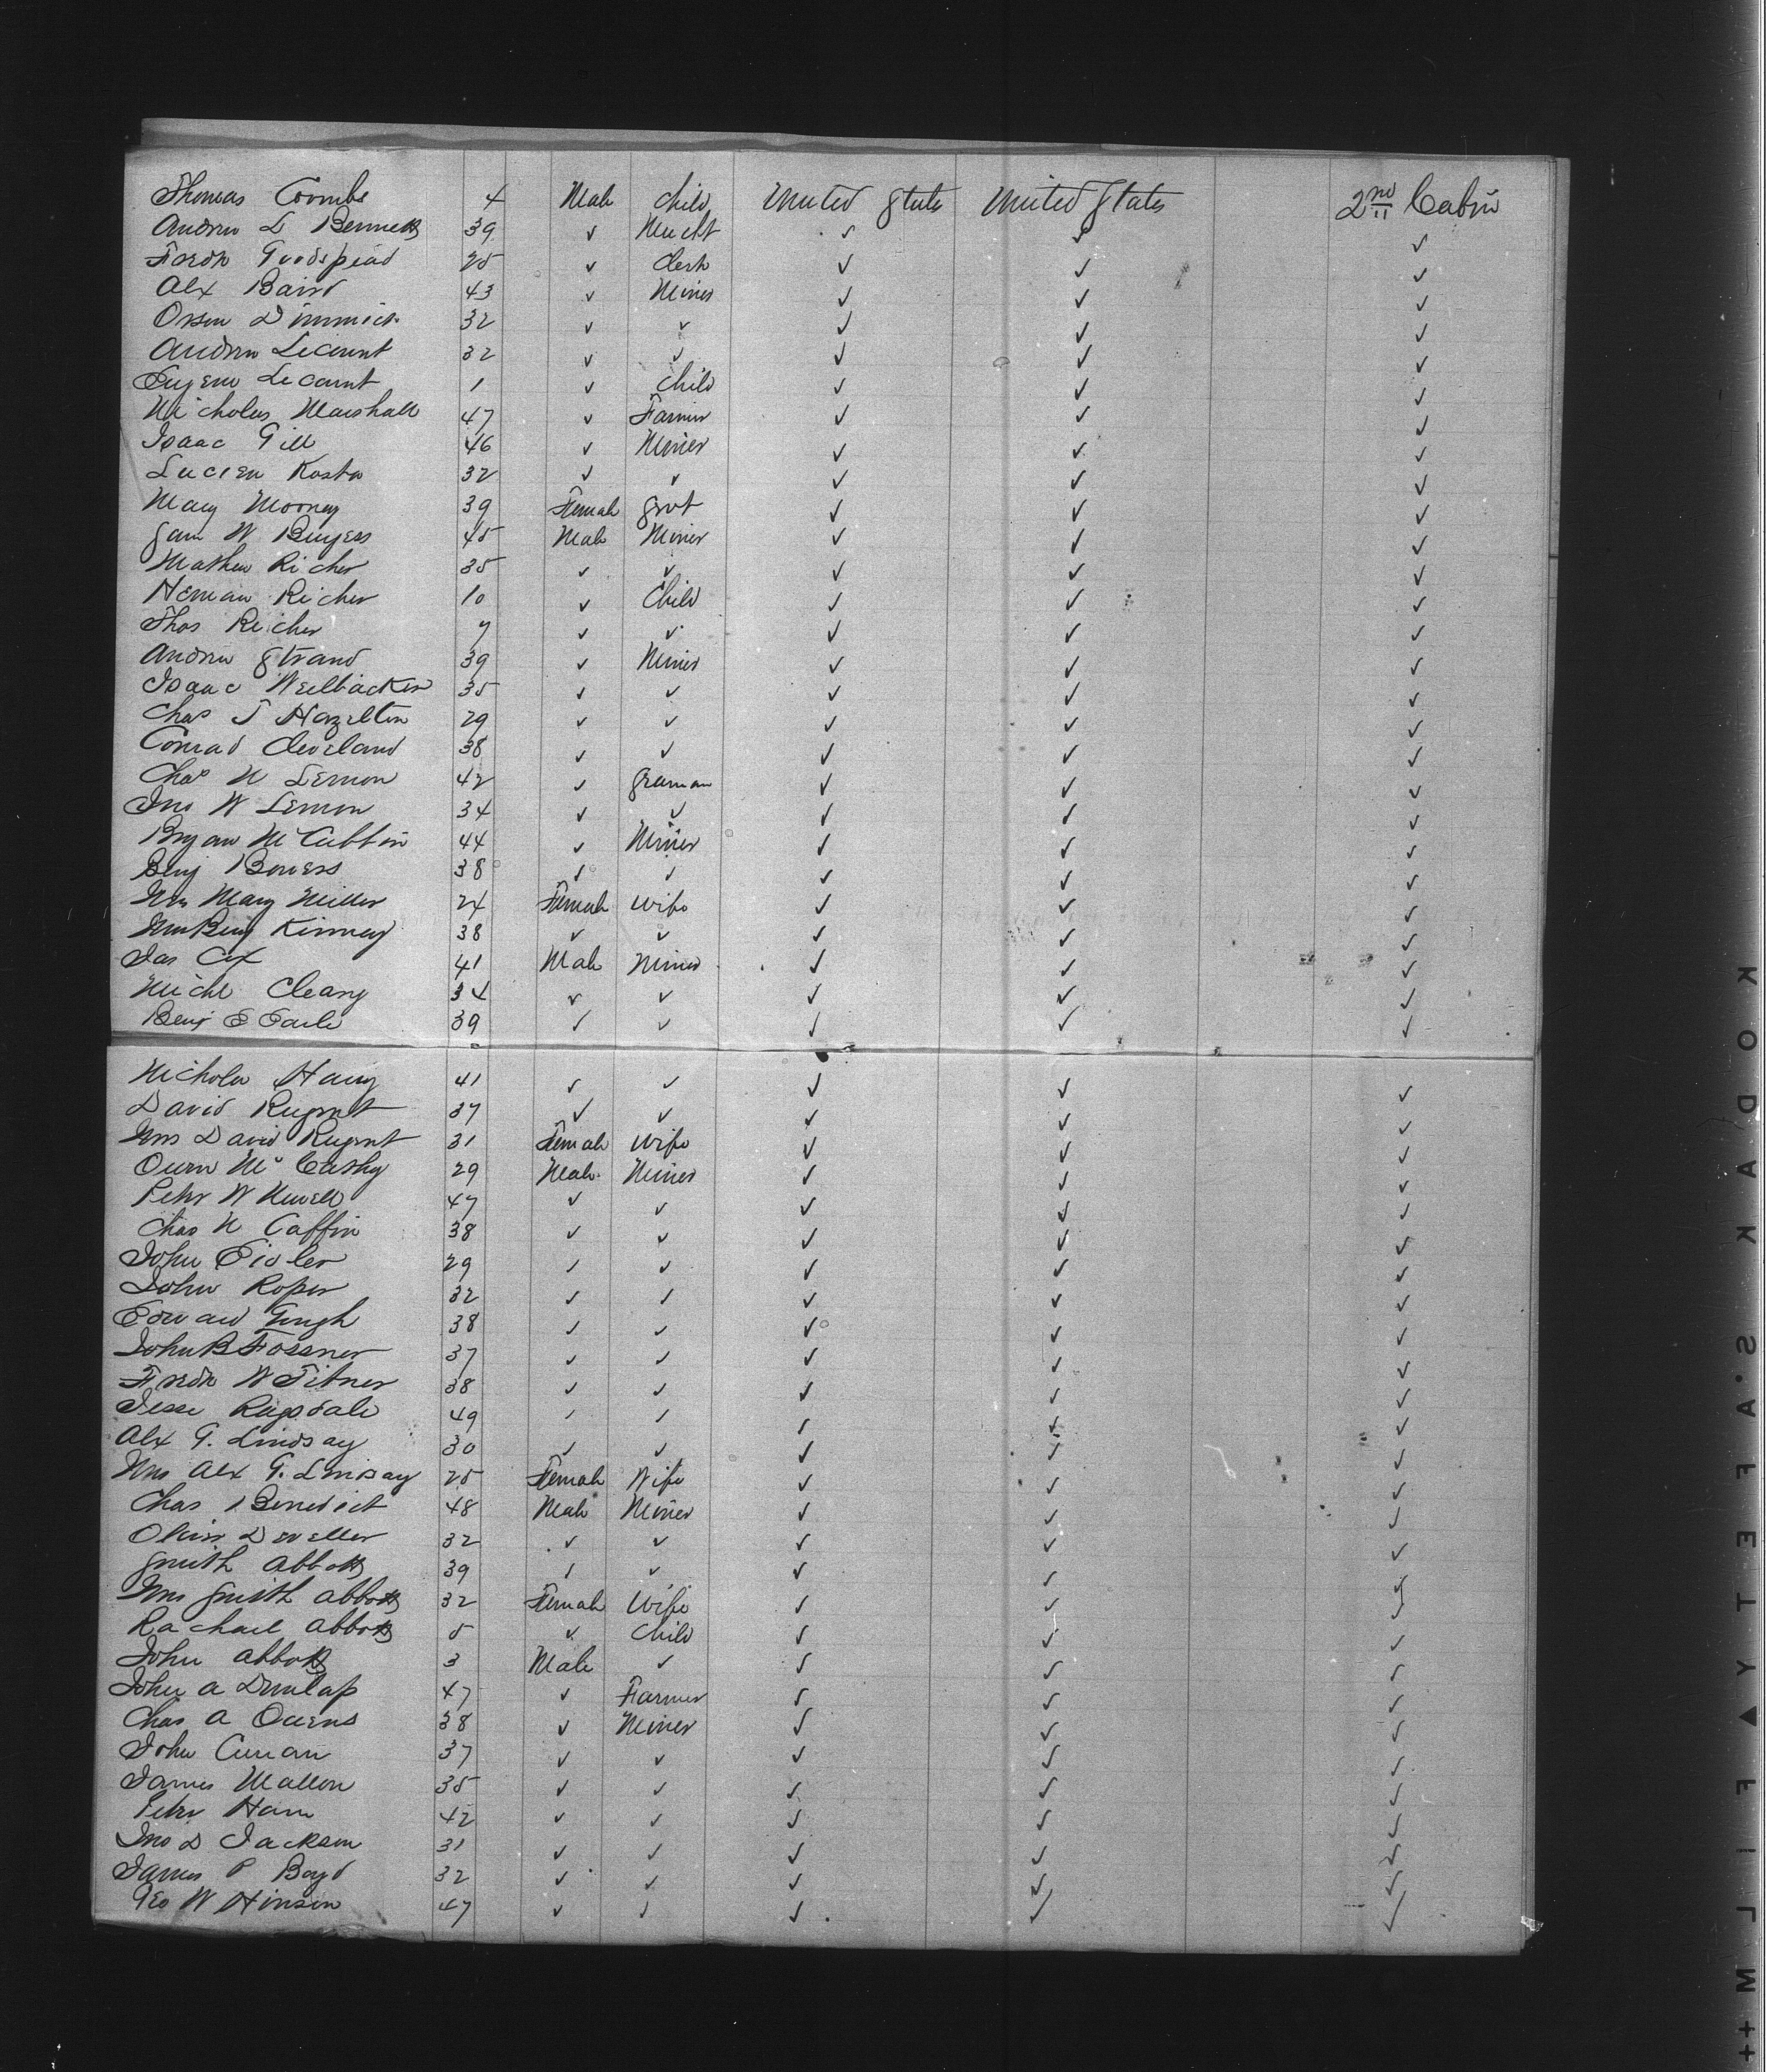 Thomas Coombs 4 Male Child United States United States 2nd Cabin
Andrew L Bennett 39 ✓ Mercht ✓ ✓ ✓
Fredk Goodspead 25 ✓ Clerk ✓ ✓ ✓
Alx Baird 43 ✓ Miner ✓ ✓ ✓
Orson Dimmick 32 ✓ ✓ ✓ ✓ ✓
Andrew Lecount 32 ✓ ✓ ✓ ✓ ✓
Eugene Lecount 1 ✓ Child ✓ ✓ ✓
Nicholas Marshall 47 ✓ Farmer ✓ ✓ ✓
Isaac Gill 46 ✓ Miner ✓ ✓ ✓
Lucien Kosta 32 ✓ ✓ ✓ ✓ ✓
Mary Mooney 39 Female Srvt ✓ ✓ ✓
Sam W Burgess 45 Male Miner ✓ ✓ ✓
Mathew Richer 35 ✓ ✓ ✓ ✓ ✓
Herman Richer 10 ✓ Child ✓ ✓ ✓
Thos Richer 7 ✓ ✓ ✓ ✓ ✓
Andrew Strand 39 ✓ Miner ✓ ✓ ✓
Isaac Weilbacker 35 ✓ ✓ ✓ ✓ ✓
Chas J Hazelton 29 ✓ ✓ ✓ ✓ ✓
Conrad Cleveland 38 ✓ ✓ ✓ ✓ ✓
Chas N Lemon 42 ✓ Seaman ✓ ✓ ✓
Jno W Lemon 34 ✓ ✓ ✓ ✓ ✓
Bryan McCubbin 44 ✓ Miner ✓ ✓ ✓
Benj Bowers 38 ✓ ✓ ✓ ✓ ✓
Mrs Mary Miller 24 Female Wife ✓ ✓ ✓
Mrs Benj Kinney 38 ✓ ✓ ✓ ✓ ✓
Jas Cox 41 Male Miner ✓ ✓ ✓
Michl Cleary 34 ✓ ✓ ✓ ✓ ✓
Benj E Earle 39 ✓ ✓ ✓ ✓ ✓
Nicholas 41 ✓ ✓ ✓ ✓ ✓
David Rugent 37 ✓ ✓ ✓ ✓ ✓
Mrs David Rugent 31 Female Wife ✓ ✓ ✓
Owen McCarthy 29 Male Miner ✓ ✓ ✓
Peter W Newell 47 ✓ ✓ ✓ ✓ ✓
Chas N Caffin 38 ✓ ✓ ✓ ✓ ✓
John Eisler 29 ✓ ✓ ✓ ✓ ✓
John Roper 32 ✓ ✓ ✓ ✓ ✓
Edward Gough 38 ✓ ✓ ✓ ✓ ✓
John B Fossner 37 ✓ ✓ ✓ ✓ ✓
Fredk W Fitner 38 ✓ ✓ ✓ ✓ ✓
Jesse Ragsdale 49 ✓ ✓ ✓ ✓ ✓
Alx G. Lindsay 30 ✓ ✓ ✓ ✓ ✓
Mrs Alx G. Lindsay 25 Female Wife ✓ ✓ ✓
Chas Benedict 48 Male Miner ✓ ✓ ✓
Oliver Dweller 32 ✓ ✓ ✓ ✓ ✓
Smith Abbott 39 ✓ ✓ ✓ ✓ ✓
Mrs Smith Abbott 32 Female Wife ✓ ✓ ✓
Rachael Abbott 5 ✓ Child ✓ ✓ ✓
John Abbott 3 Male ✓ ✓ ✓ ✓
John A Dunlap 47 ✓ Farmer ✓ ✓ ✓
Chas A Owens 38 ✓ Miner ✓ ✓ ✓
John Curran 37 ✓ ✓ ✓ ✓ ✓
James Mallon 35 ✓ ✓ ✓ ✓ ✓
Peter Ham 42 ✓ ✓ ✓ ✓ ✓
Jno D Jackson 31 ✓ ✓ ✓ ✓ ✓
James P Boyd 32 ✓ ✓ ✓ ✓ ✓
Geo W Hinson 47 ✓ ✓ ✓ ✓ ✓
KODAK SAFETY FILM